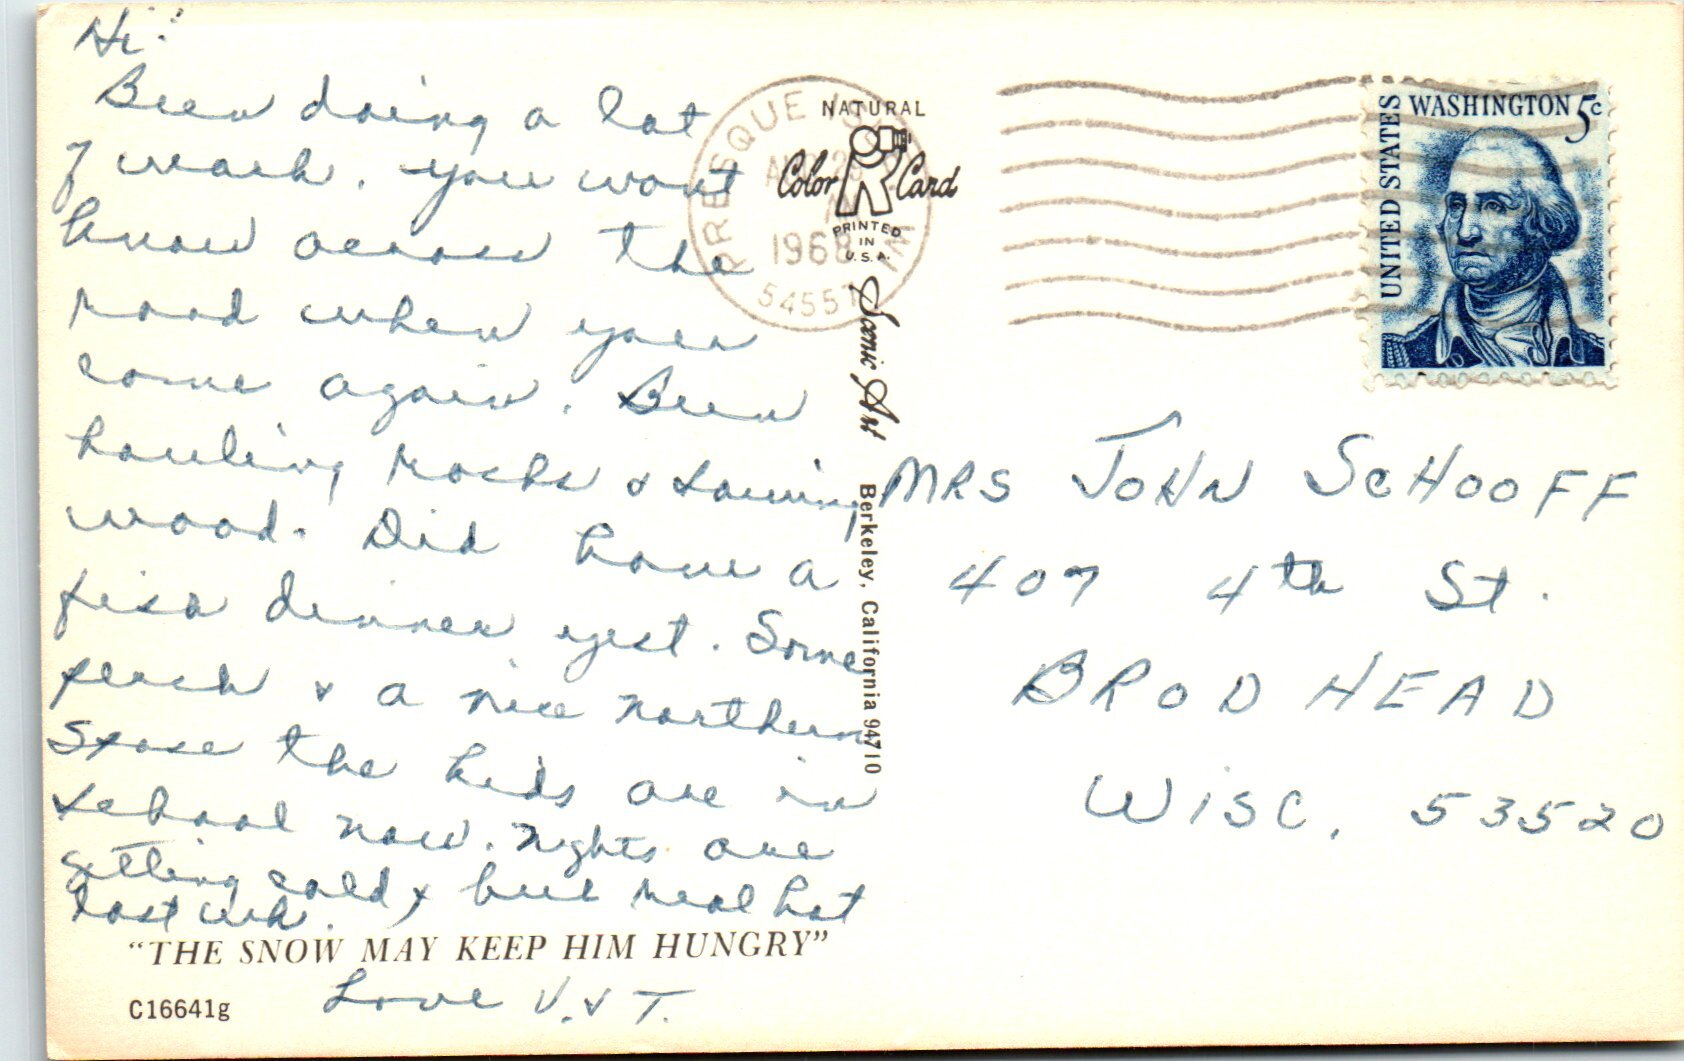 Hi!
Been doing a lot
of work. You wont
know across the
road when your
come again. Been
hauling rocks & sawing
wood. Did have a
fish dinner yest. Some
perch & a nice northern
Spose the kids are in
school now. Nights are
getting cold & but real hot
last wk.
"THE SNOW MAY KEEP HIM HUNGRY"
Love V. & T.
C16641g
NATURAL
Color Card
PRINTED
IN
U.S.A.
Scenic Art Berkeley, California 94710
PRESQUE ISLE
28
1968
WI
UNITED STATES
WASHINGTON 5c
MRS JOHN SCHOOFF
407 4th St.
BRODHEAD
WISC. 53520